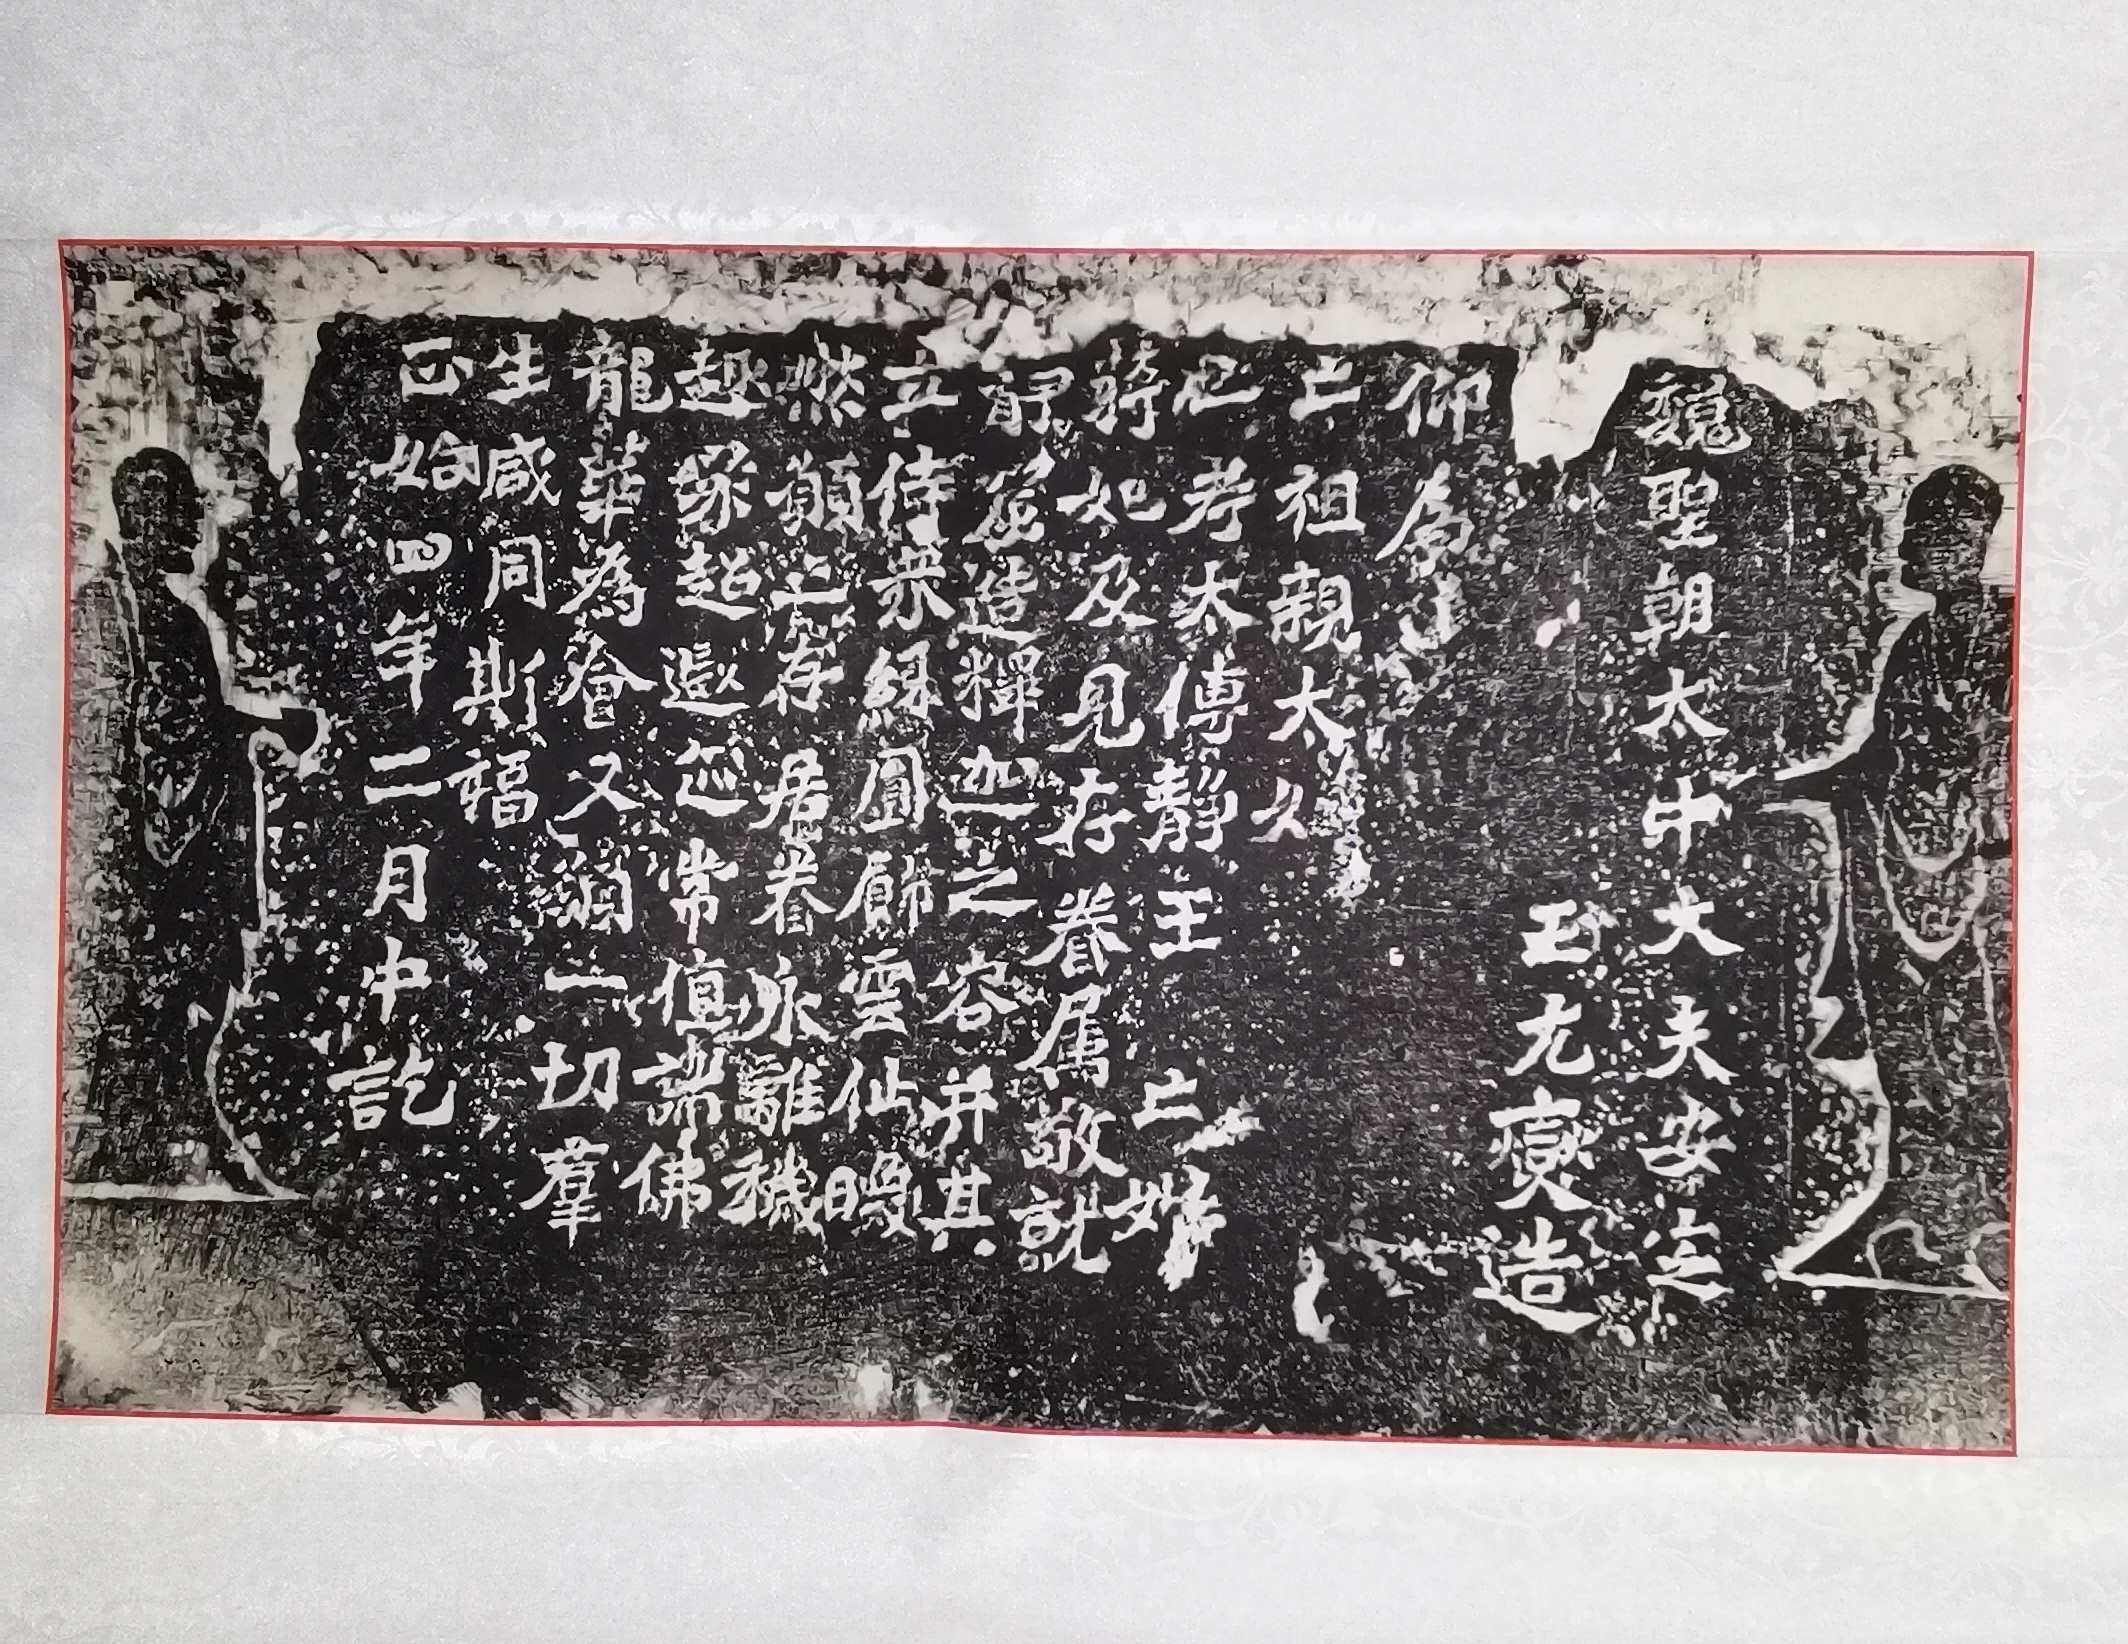 魏聖朝太中大夫安定
王元燮造
仰為
亡祖親太妃
亡考太傅靜王
亡妣
蔣妃及見存眷属敬就
靜窟造釋迦之容并其
立侍衆綵圓飾雲仙暎
然願亡存居眷永離穢
趣昇超遐迹常值諸佛
龍華為會又願一切羣
生咸同斯福
正始四年二月中訖